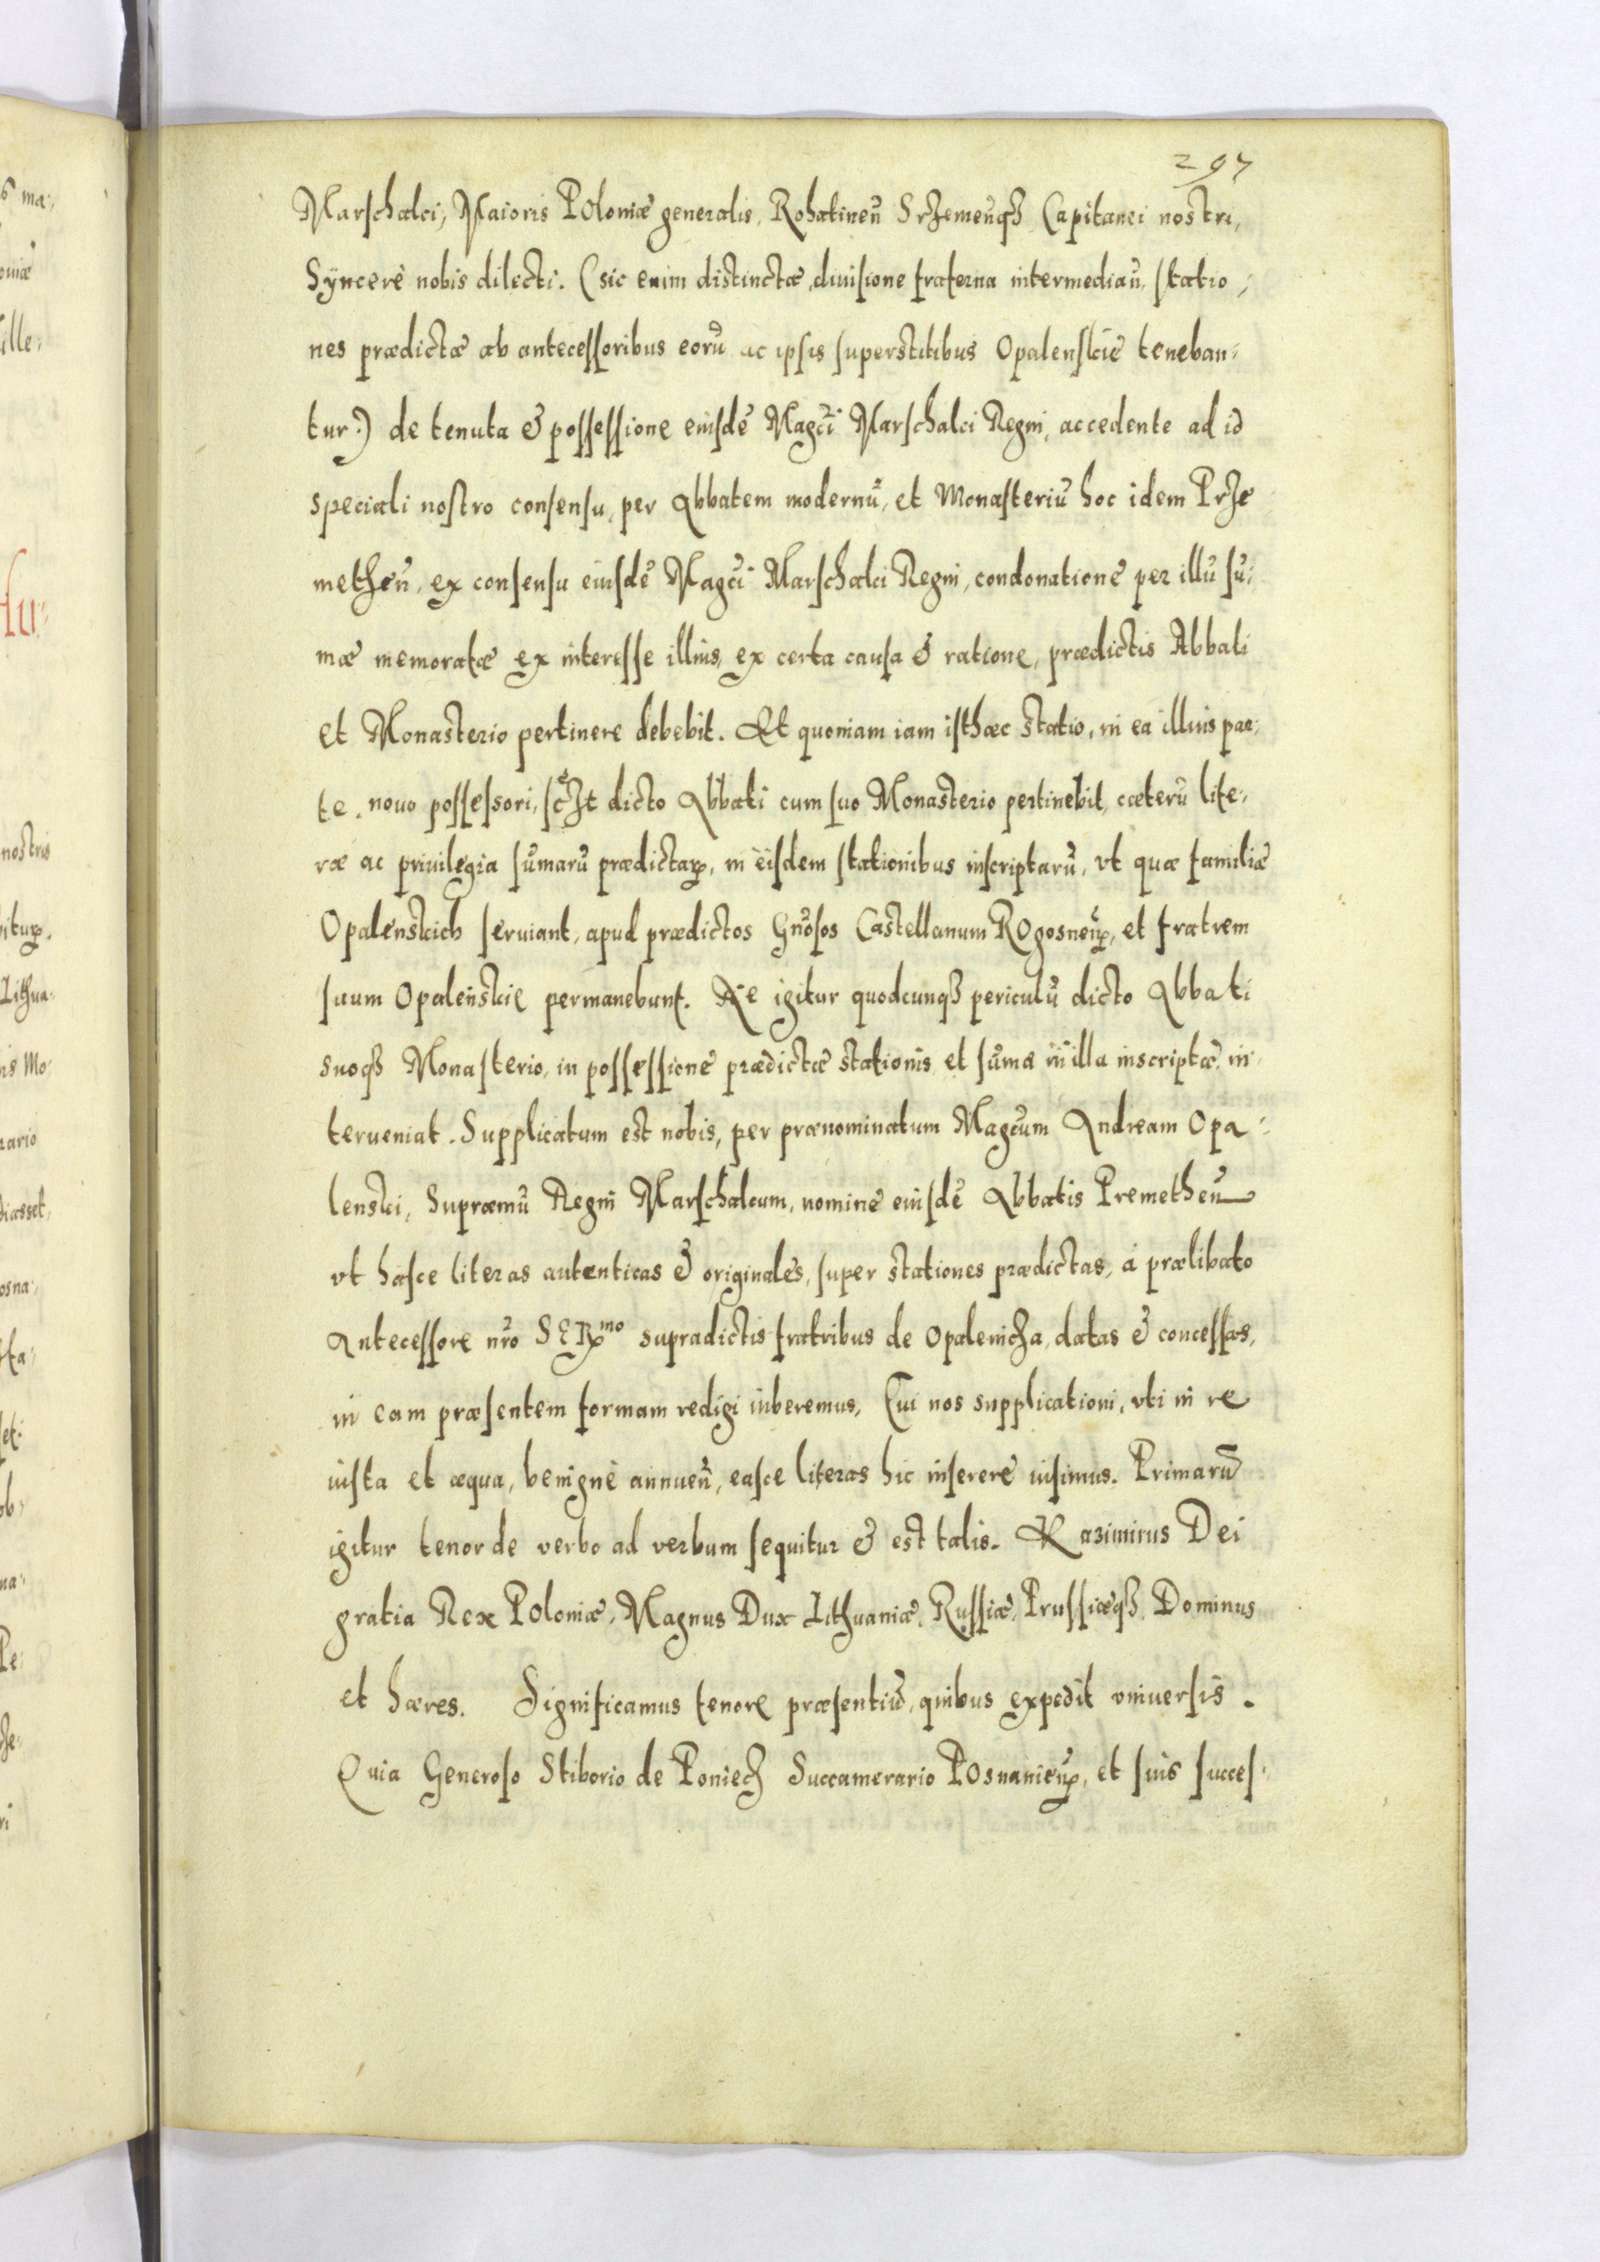 297
Marschalci, Maioris Poloniæ generalis, Rohatineñ Srzemeñq3 Capitanei nostri,
Syncerè nobis dilecti. (sic enim distinctæ, diuisione fraterna intermediañ, statio-
nes prædictæ ab antecessoribus eorũ ac ipsis superstitibus Opalenscie teneban-
tur:) de tenuta & possessione eiusdẽ Magci Marschalci Regni, accedente ad id
speciali nostro consensu, per Abbatem modernũ, et Monasteriũ hoc idem Prze
metheñ, ex consensu eiusdẽ Magci Marschalci Regni, condonationẽ per illũ sũ-
mæ memoratæ ex interesse illius, ex certa causa & ratione, prædictis Abbati
et Monasterio pertinere debebit. Et quoniam iam isthæc statio, in ea illius par-
te, nouo possessori, dicto Abbati cum suo Monasterio pertinebit, cæterũ lite-
ræ ac priuilegia sũmarũ prædictaꝝ, in eisdem stationibus inscriptarũ, vt quæ familiæ
Opalenscich seruiant, apud prædictos Gñosos Castellanum Rogosneñ, et fratrem
suum Opalenscie permanebunt. Ne igitur quodcunq3 periculũ dicto Abbati
suoq3 Monasterio, in possessionẽ prædictæ stationis et sũmæ in illa inscriptæ, in-
terueniat. Supplicatum est nobis, per prænominatum Magcum Andream Opa-
lensci, Supræmũ Regni Marschalcum, nomine eiusdẽ Abbatis Premetheñ
vt hasce literas autenticas & originales, super stationes prædictas, à prælibato
Antecessore nro SERmo supradictis fratribus de Opalenicza, datas & concessas,
in eam præsentem formam redigi iuberemus, Cui nos supplicationi, vti in re
iusta et æqua, benignè annueñ, easce literas hic inserere iusimus. Primarũ
igitur tenor de verbo ad verbum sequitur & est talis. Kazimirus Dei
gratia Rex Poloniæ, Magnus Dux Lithuaniæ, Russiæ, Prussiæq3 Dominus
et hæres. Significamus tenore præsentiũ, quibus expedit vniuersis.
Quia Generoso Stiborio de Poniecz Succamerario Posnanieñ, et suis succes-